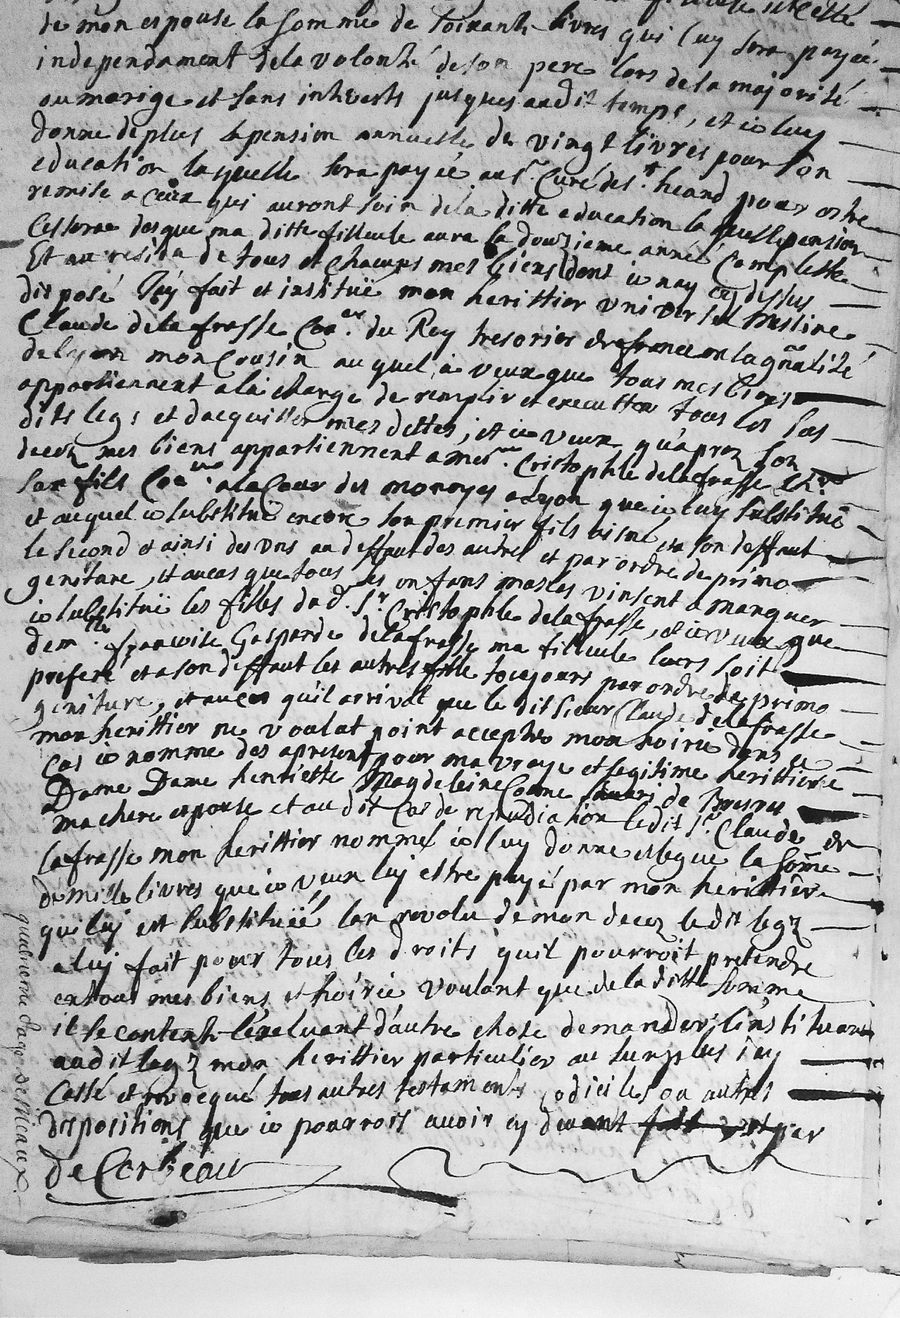 de mon espouse la somme de soixante livres qui luy sera payée
independament de la volonté de son pere lors de la majorité
ou marige et sans interests jusques audit temps, et ie luy
donne de plus la pension annuelle de vingt livres pour son
education laquelle sera payée au Sr. Curé de St. heand pour estre
remise a ceux qui auront soin de la ditte education laquelle pension
cessera des que ma ditte filleule aura la douzieme année complette
Et au residu de tous et chacuns mes biens dont ie nay cy dessus
disposé J'ay fait et institué mon herittier universel Messire
Claude de la frasse Coner. du Roy tresorier de france en la gñalité
de Lyon mon Cousin auquel ie veux que tous mes biens
appartiennent a la charge de remplir et executter tous les sus
dits legs et dacquitter mes dettes, et ie veux qu'aprez son
decez mes biens appartiennent a mesre. Cristophle de la frasse
son fils Coner. a la Cour des monoyes a Lyon que ie luy substitue
et auquel ie substitue encore son premier fils aisné, et a son deffaut
le second et ainsi des uns au deffaut des autres et par ordre de primo
geniture, et au cas que tous les enfans masles vinsent a manquer
ie substitue les filles dud. Sr. Cristophle de la frasse, et ie veux que
demlle francoise Gasparde de la frasse ma filleule leurs soit
preferé et a son deffaut les autres fille toujours par ordre de primo
geniture, et au cas qu'il arrivat que le dit sieur Claude de la frasse
mon herittier ne voulat point accepter mon hoirie dans ce
cas ie nomme des apresent pour ma vraye et legitime herittiere
Dame Dame henriette Magdeleine de
ma chere espouse et au dit cas de repudiation ledit Sr. Claude de
la frasse mon herittier nommé ie luy donne et legue la somme
de mille livres que ie veux luy estre payé par mon herittiere
qui luy est substituée lan revolu de mon decez le dit legz
a luy fait pour tous les droits quil pourroit pretendre
en tous mes biens et hoirie voulant que de la ditte somme
il se contente l'excluant d'autre chose demander, l'instituant
audit legz mon herittier particulier au surplus j'ay
cassé et revoqué tous autres testaments codiciles ou autres
dispositions que ie pourrois avoir cy devant par
de Corbeau
quatrieme page de